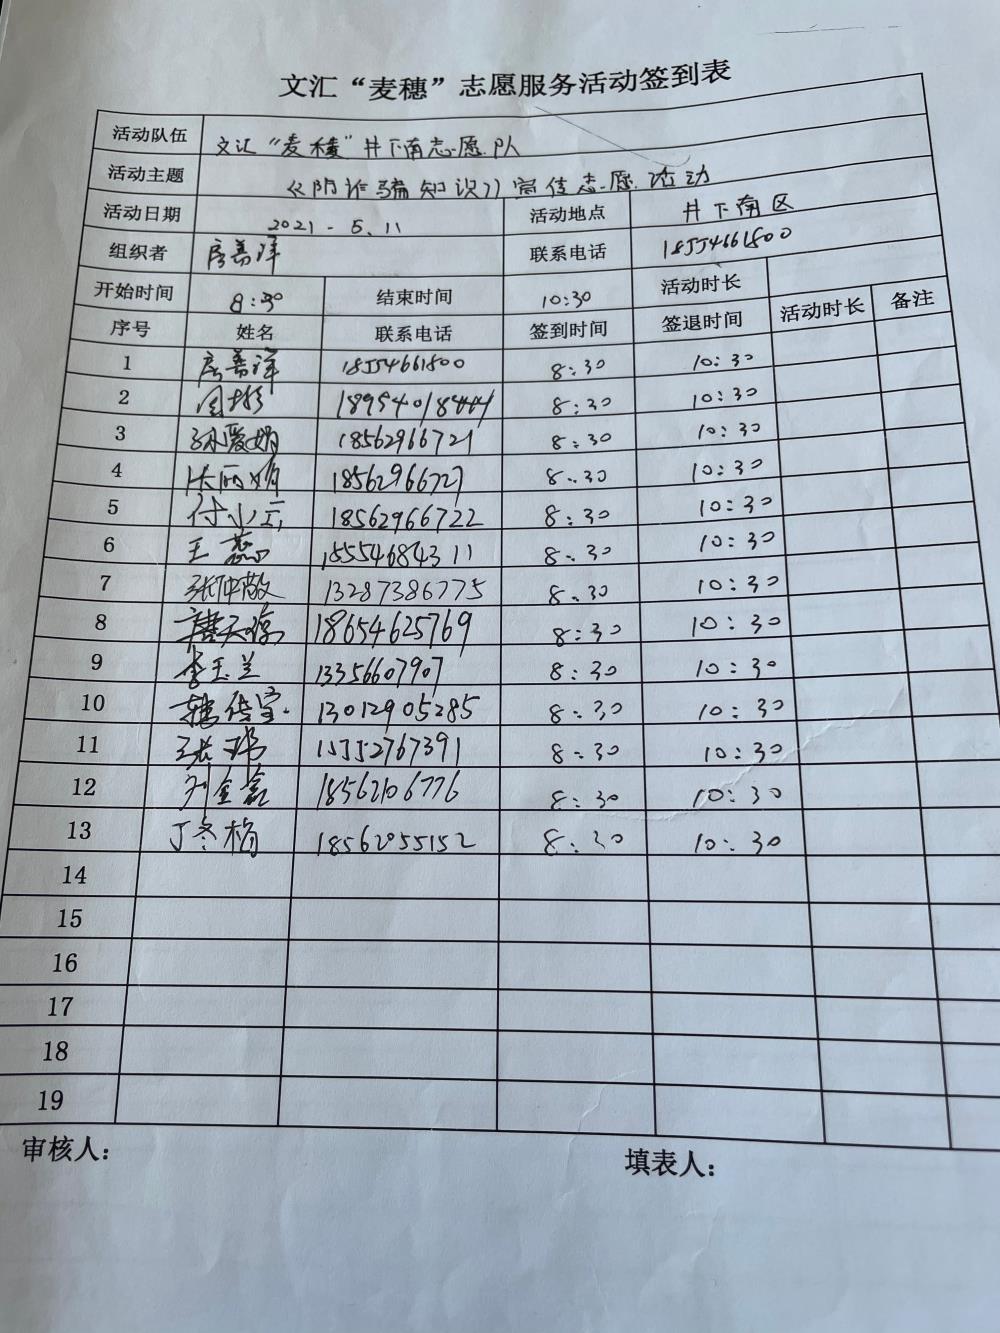 文汇“麦穗”志愿服务活动签到表
活动队伍 文汇“麦穗”井下南志愿队
活动主题 《防诈骗知识》宣传志愿活动
活动日期 2021-5.11 活动地点 井下南区
组织者 房善洋 联系电话 18554661800
开始时间 8:30 结束时间 10:30 活动时长
序号 姓名 联系电话 签到时间 签退时间 活动时长 备注
1 房善洋 18554661800 8:30 10:30
2 18954018444 8:30 10:30
3 孙爱娟 18562966721 8:30 10:30
4 张丽娟 18562966727 8:30 10:30
5 付小云 18562966722 8:30 10:30
6 王蕊 15554684311 8:30 10:30
7 张仲敬 13287386775 8:30 10:30
8 18654625769 8:30 10:30
9 李玉兰 13356607907 8:30 10:30
10 韩传宝 13012905285 8:30 10:30
11 张玮 15552767391 8:30 10:30
12 刘金鑫 18562106776 8:30 10:30
13 丁冬梅 18562055152 8:30 10:30
14
15
16
17
18
19
审核人： 填表人：